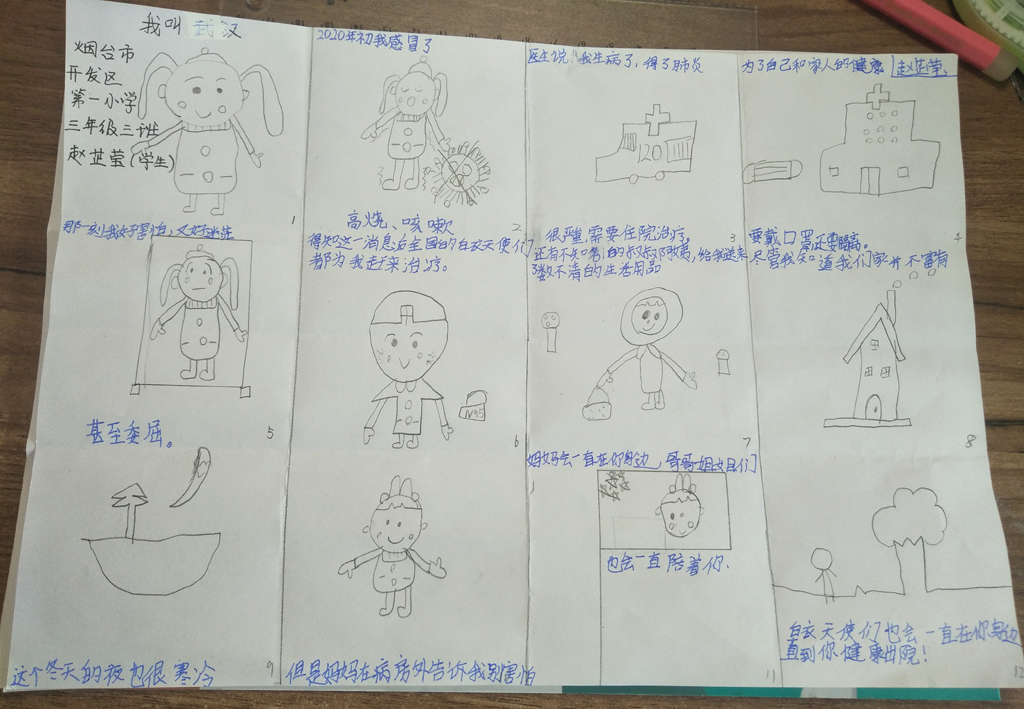 我叫 武汉
烟台市
开发区
第一小学
三年级三班
赵芷莹(学生)
1
2020年初我感冒了
高烧、咳嗽
2
医生说:我生病了,得了肺炎
120
很严重,需要住院治疗。
3
为了自己和家人的健康
赵芷莹。
要戴口罩还要隔离。
4
那一刻我好害怕,又好迷茫
甚至委屈。
5
得知这一消息后全国的白衣天使们
都为我赶来治疗。
N95
6
还有不知名的叔叔邓敏夷,给我送来
了数不清的生活用品
7
尽管我知道我们家并不富有
8
这个冬天的夜也很寒冷
9
但是妈妈在病房外告诉我别害怕
妈妈会一直在你身边,哥哥姐姐们
也会一直陪着你.
11
白衣天使们也会一直在你身边
直到你健康出院!
12